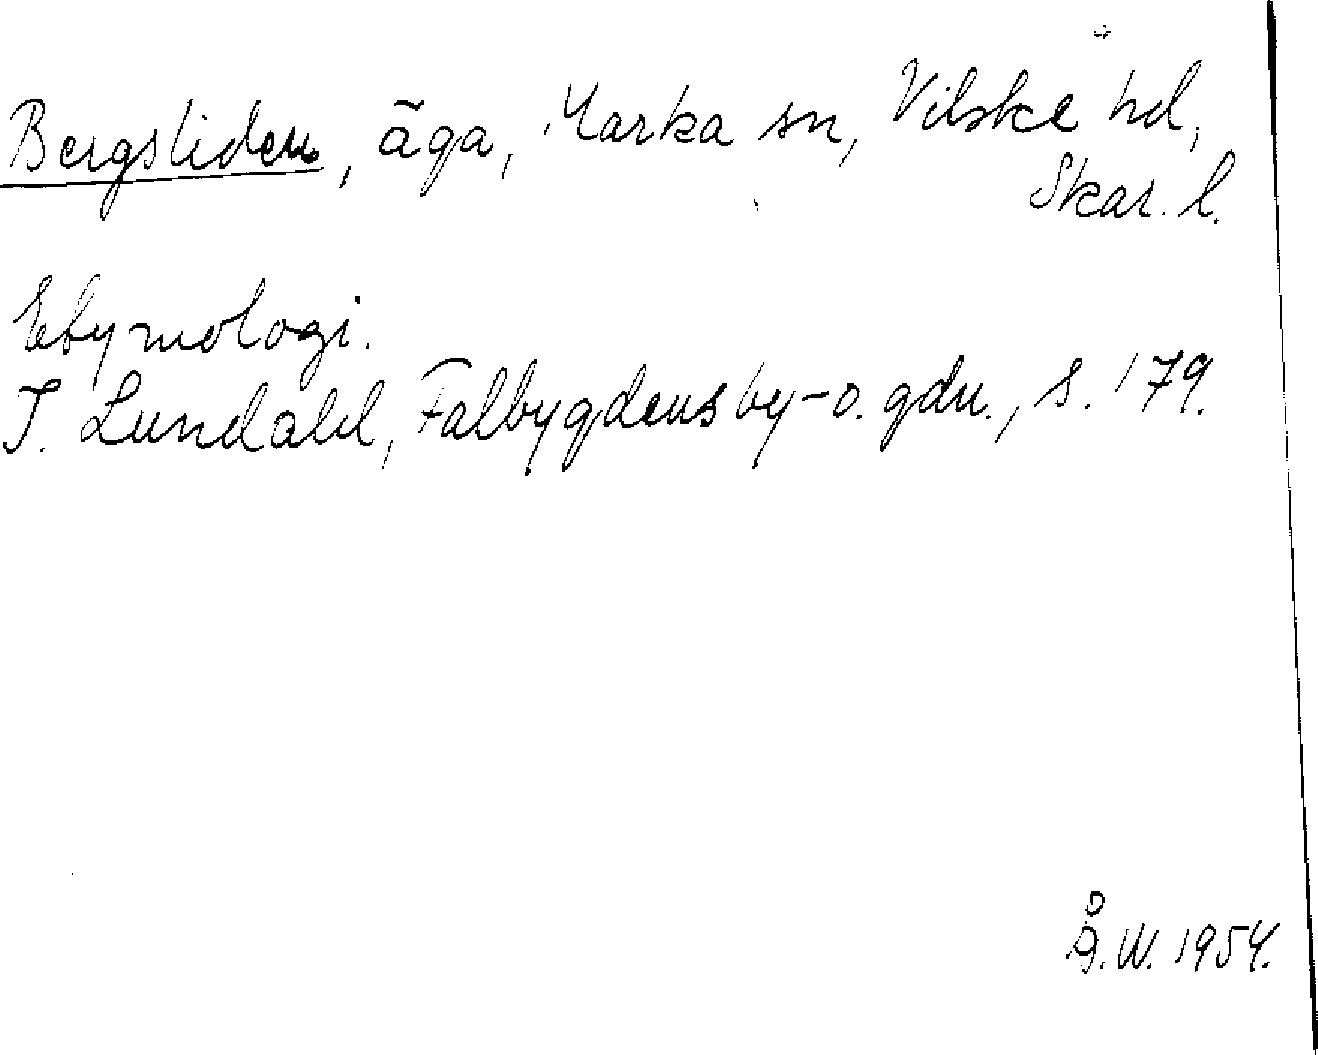 Bergsliden, äga, Marka sn, Vilske hd,
Skar. l.
Etymologi.
I. Lundahl, Falbygdens by- o. gdn., s. 179.
Å.W. 1954.